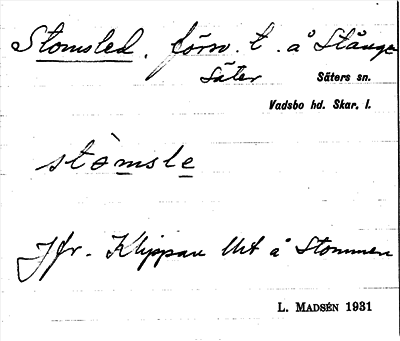 Stomsled. försv. t. å Stånge
Säter Säters sn.
Vadsbo hd. Skar. l.
stòmsle
Jfr. Klippan Ut å Stommen
L. MADSÉN 1931